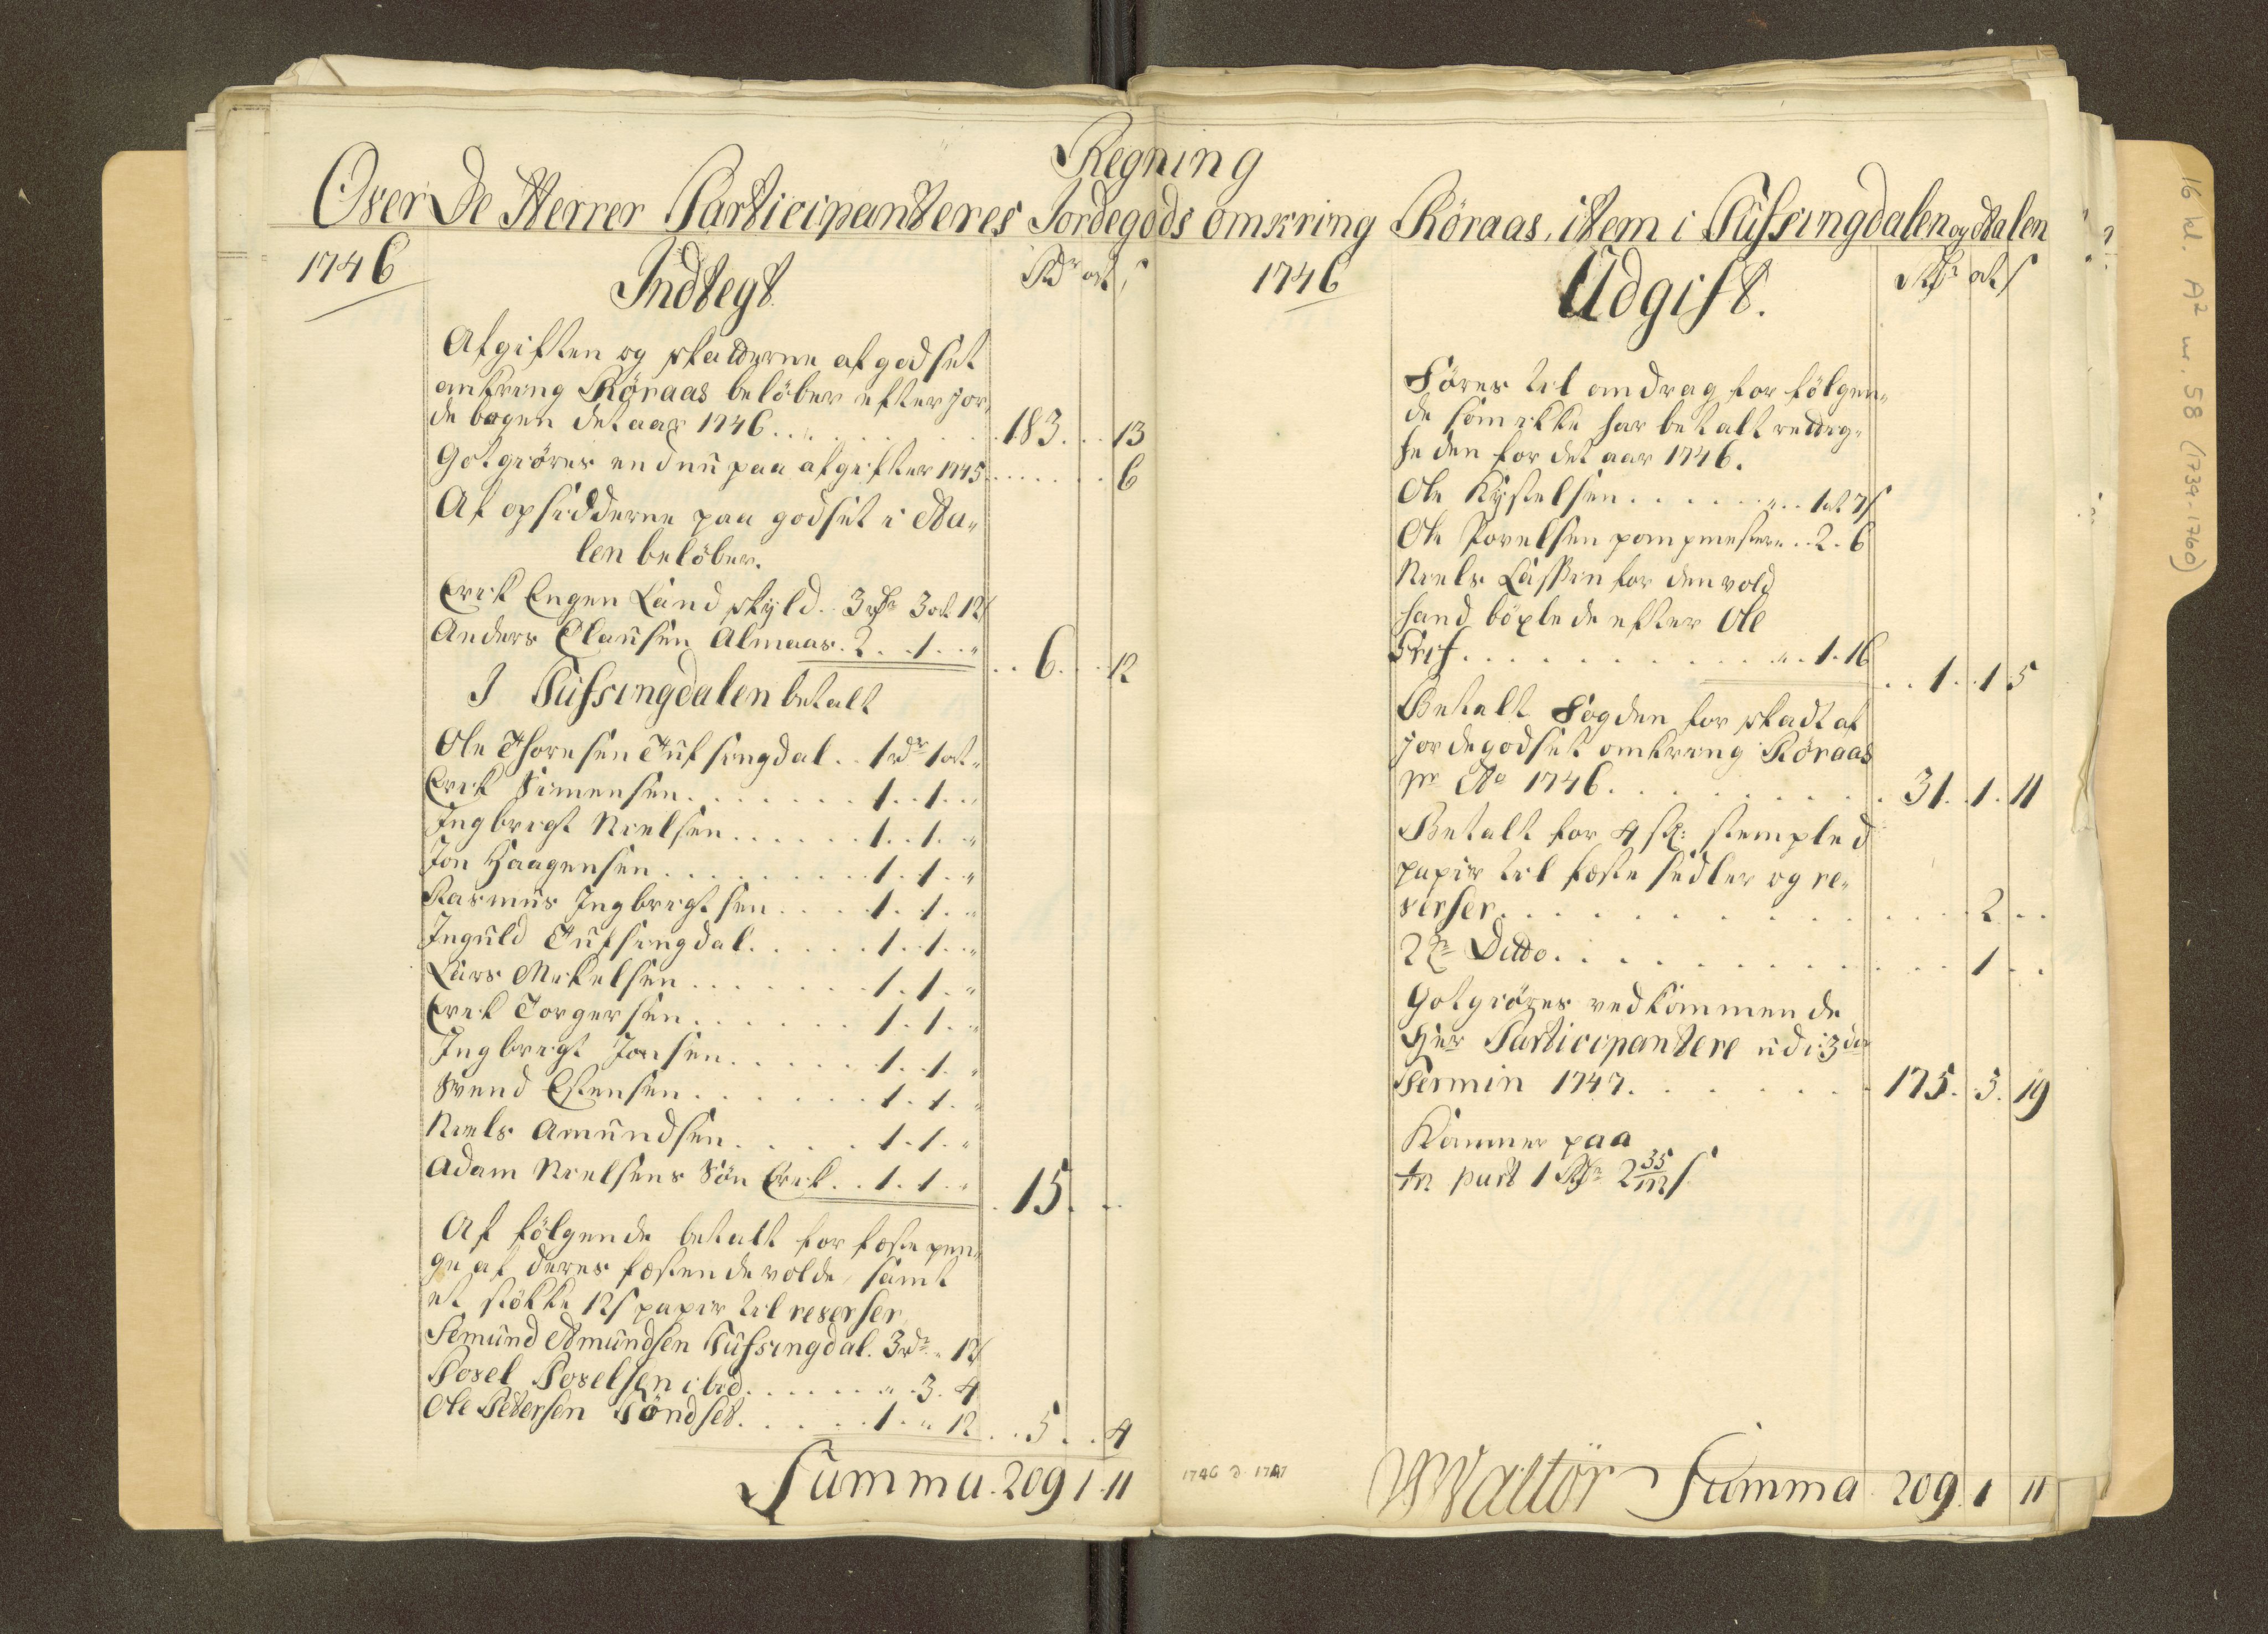 Regning
Over De Herrer Participanteres Jordegods omkring Röraas, item i Tufsingdalen og Aalen
1746
Indtegt
Rdr ort s
Afgiften og skatterne af godset
omkring Röraas belöber efter jor„
de bogen det aar 1746 . . . . 183 . . 13
Gotgiöres endnu paa afgifter 1745 . . . . 6
Af opsidderne paa godset i Aa„
len belöber.
Erich Engen Landskyld . . 3 rdr 3 ort 12 s
Anders Clausen Almaas . 2 . . 1 . . „ . . 6 . . . 12
I Tufsingdalen betalt
Ole Thoresen Tufsingdal . . 1 rdr 1 ort „
Erich Simensen . . . . . . 1 . . 1 . . „
Ingbrigt Nielsen . . . . . . 1 . . 1 . „
Jon Haagensen . . . . . . . 1 . 1 . „
Rasmus Ingbrigtsen . . . . 1 . 1 . „
Inguld Tufsingdal . . . . . 1 . 1 . „
Lars Mikelsen . . . . . . . 1 . 1 . „
Erich Torgersen . . . . . . 1 . 1 . „
Ingbrigt Jonsen . . . . . 1 . 1 . „
Svend Estensen . . . . . . 1 . 1 . „
Niels Amundsen . . . . 1 . 1 . „
Adam Nielsens Sön Erich . . 1 . 1 . „ . 15 . . .
Af fölgende betalt for feste pen„
ge af deres festende volde, samt
et stökke 12 s papir til reverser
Semund Amundsen Tufsingdal . 3 rdr „ 12 s
Povel Povelsen ibid . . . . . . „ . 3 . 4
Ole Petersen Töndset . . . . . 1 . „ 12 . . 5 . . 4
Summa . 209 1 . 11
1746
Udgift.
Rdr ort s
Föres til andrag for fölgen„
de som ikke har betalt rettig„
heden for det aar 1746.
Ole Kystelsen . . . . . . „ . . 1 ort 7 s
Ole Povelsen pompmester . . 2 . 6
Niels Lassen for den vold
hand böxlede efter Ole
Grif . . . . . . . . . . . „ . . 1 . 16 . . 1 . . 1 5
Betalt Fogden for skadt af
jordegodset omkring Röraas
pr Ao 1746 . . . . . . . . . 31 . . 1 . 11
Betalt for 4 st: stempled
papir til feste sedler og re„
verser . . . . . . . . . . . . . . . 2 . .
2 Ditto . . . . . . . . . . . . . 1 . .
Gotgiöres vedkommende
Herr Participantere udi 3die
Termin 1747 . . . . . . . 175 . 3 . 19
Kommer paa
hr part 1 Rdr 2 35/172 s
1746 d. 1747
WWaltör Summa 209 . 1 11
16 kl. A2 nr. 58 (1734-1760)